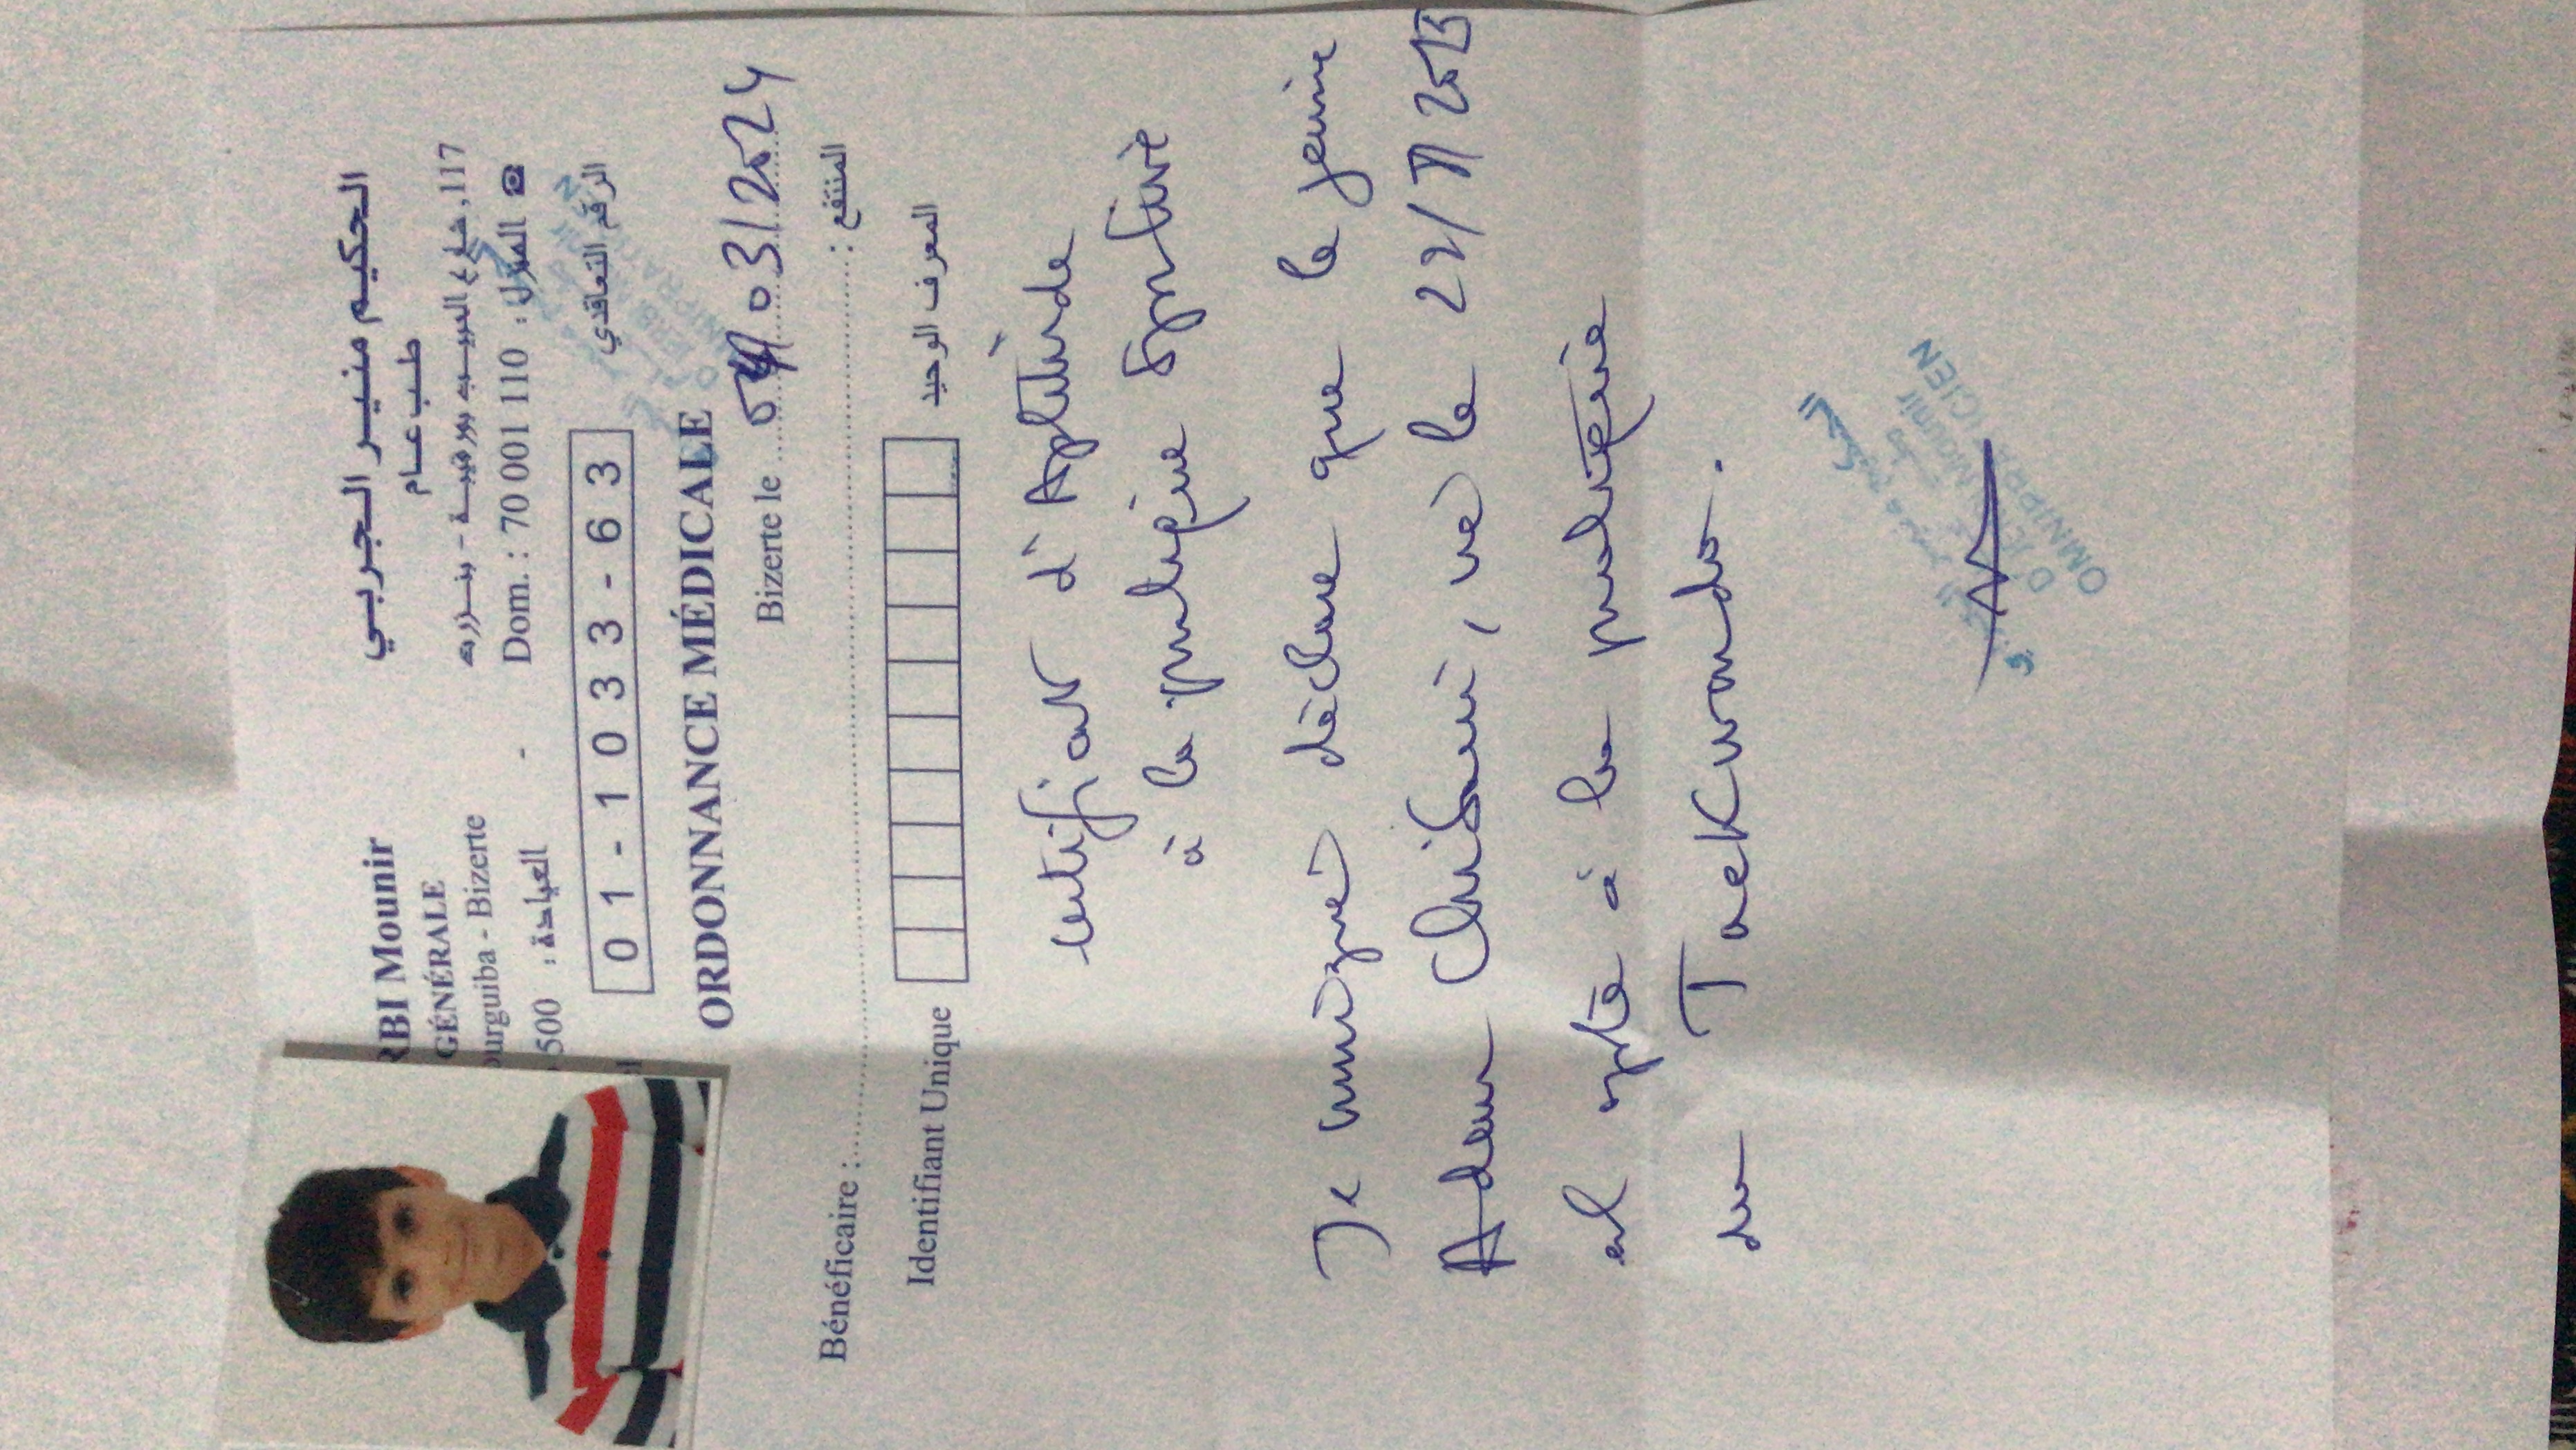 RBI Mounir
GÉNÉRALE
ourguiba - Bizerte
500 العيادة :
-
الحكيم منير الجربي
طب عام
117, شارع الحبيب بورقيبة - بنزرت
Dom. : 70 001 110 : المنزل ☎
01-1033-63 الرقم التعاقدي
ORDONNANCE MÉDICALE
Bizerte le 03/2024
Bénéficaire : المنتفع :
Identifiant Unique المعرف الوحيد
Certificat d'Aptitude
à la pratique Sportive
Je soussigné déclare que le jeune
Adem, né le 22/11/2013
est apte à la pratique
du Taekwondo.
OMNIPRATICIEN